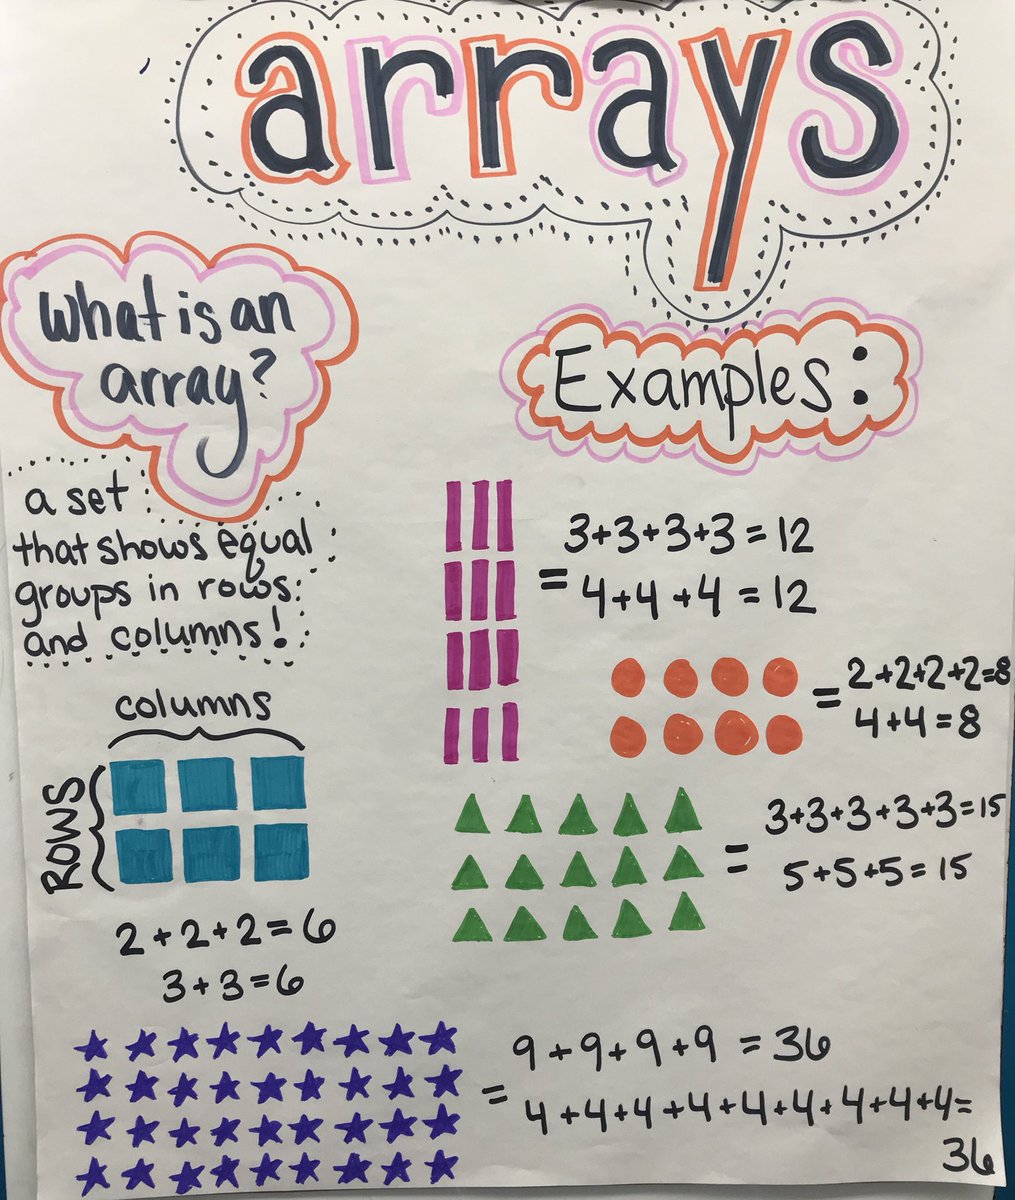 arrays
What is an
array?
a set
that shows equal
groups in rows
and columns!
columns
ROWS
2+2+2=6
3+3=6
Examples:
3+3+3+3=12
= 4+4+4=12
= 2+2+2+2=8
4+4=8
3+3+3+3+3=15
= 5+5+5=15
9+9+9+9=36
= 4+4+4+4+4+4+4+4+4=
36